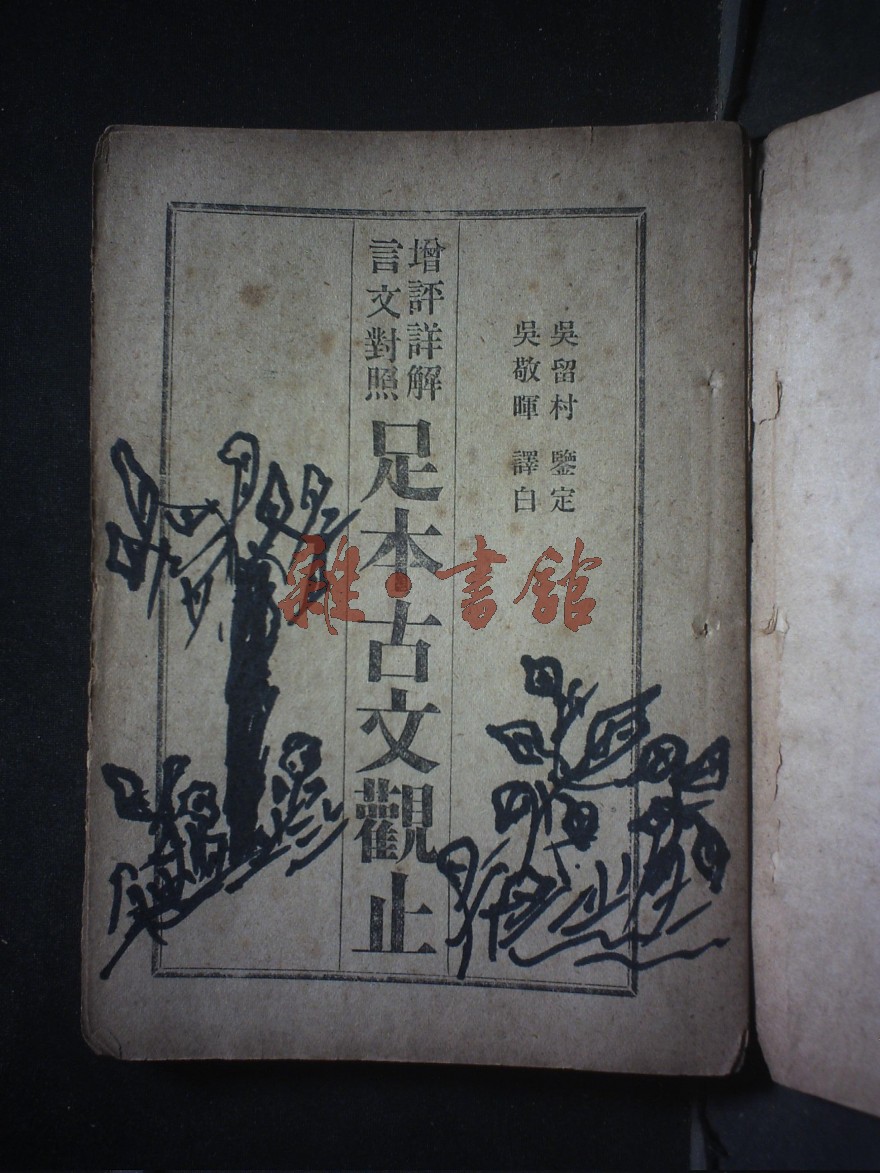 吳留村 鑒定
吳敬暉 譯白
增評詳解
言文對照
足本古文觀止
雜·書館